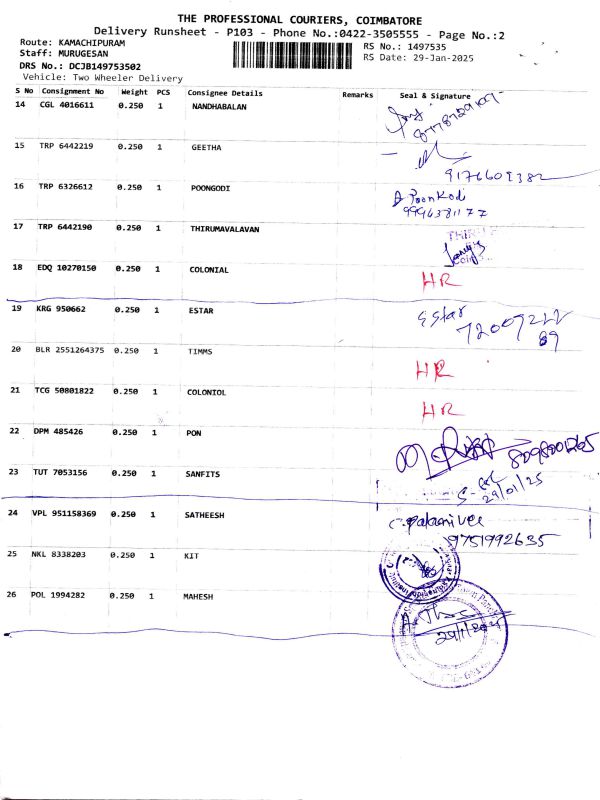 THE PROFESSIONAL COURIERS, COIMBATORE
Delivery Runsheet - P103 - Phone No.:0422-3505555 - Page No.:2
Route: KAMACHIPURAM
Staff: MURUGESAN
DRS No.: DCJB149753502
Vehicle: Two Wheeler Delivery
RS No.: 1497535
RS Date: 29-Jan-2025
S No Consignment No Weight PCS Consignee Details Remarks Seal & Signature
14 CGL 4016611 0.250 1 NANDHABALAN
15 TRP 6442219 0.250 1 GEETHA
9176609382
16 TRP 6326612 0.250 1 POONGODI
Poonkodi
9996381177
17 TRP 6442190 0.250 1 THIRUMAVALAVAN
18 EDQ 10270150 0.250 1 COLONIAL HR
19 KRG 950662 0.250 1 ESTAR Estar
89
20 BLR 2551264375 0.250 1 TIMMS HR
21 TCG 50801822 0.250 1 COLONIOL HR
22 DPM 485426 0.250 1 PON
23 TUT 7053156 0.250 1 SANFITS
29/01/25
24 VPL 951158369 0.250 1 SATHEESH
9751992635
25 NKL 8338203 0.250 1 KIT
26 POL 1994282 0.250 1 MAHESH
29/1/2025